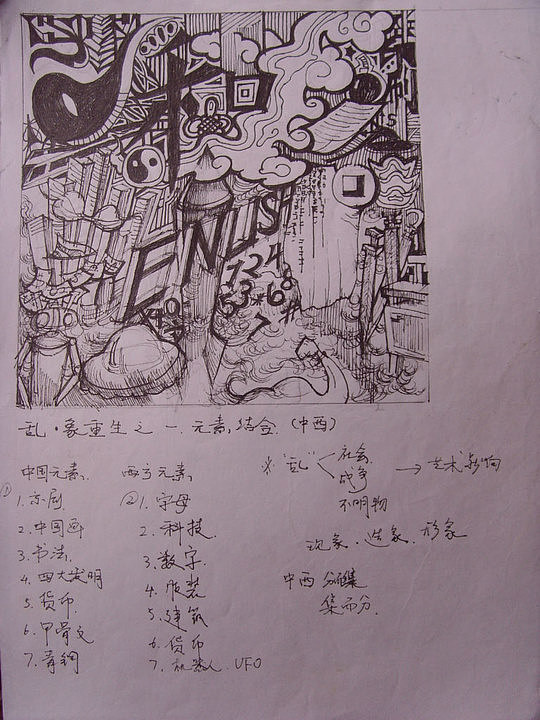 ENUS
724
53*68
7#
乱·象重生之一.元素结合.(中西)
中国元素.
①
1.京剧.
2.中国画
3.书法.
4.四大发明
5.货币.
6.甲骨文
7.青铜
西方元素.
②1.字母
2.科技.
3.数字.
4.服装
5.建筑
6.货币
7.机器人.UFO
※"乱"
社会.
战争
不明物
→艺术影响
现象.造象.形象
中西 分
集而分.